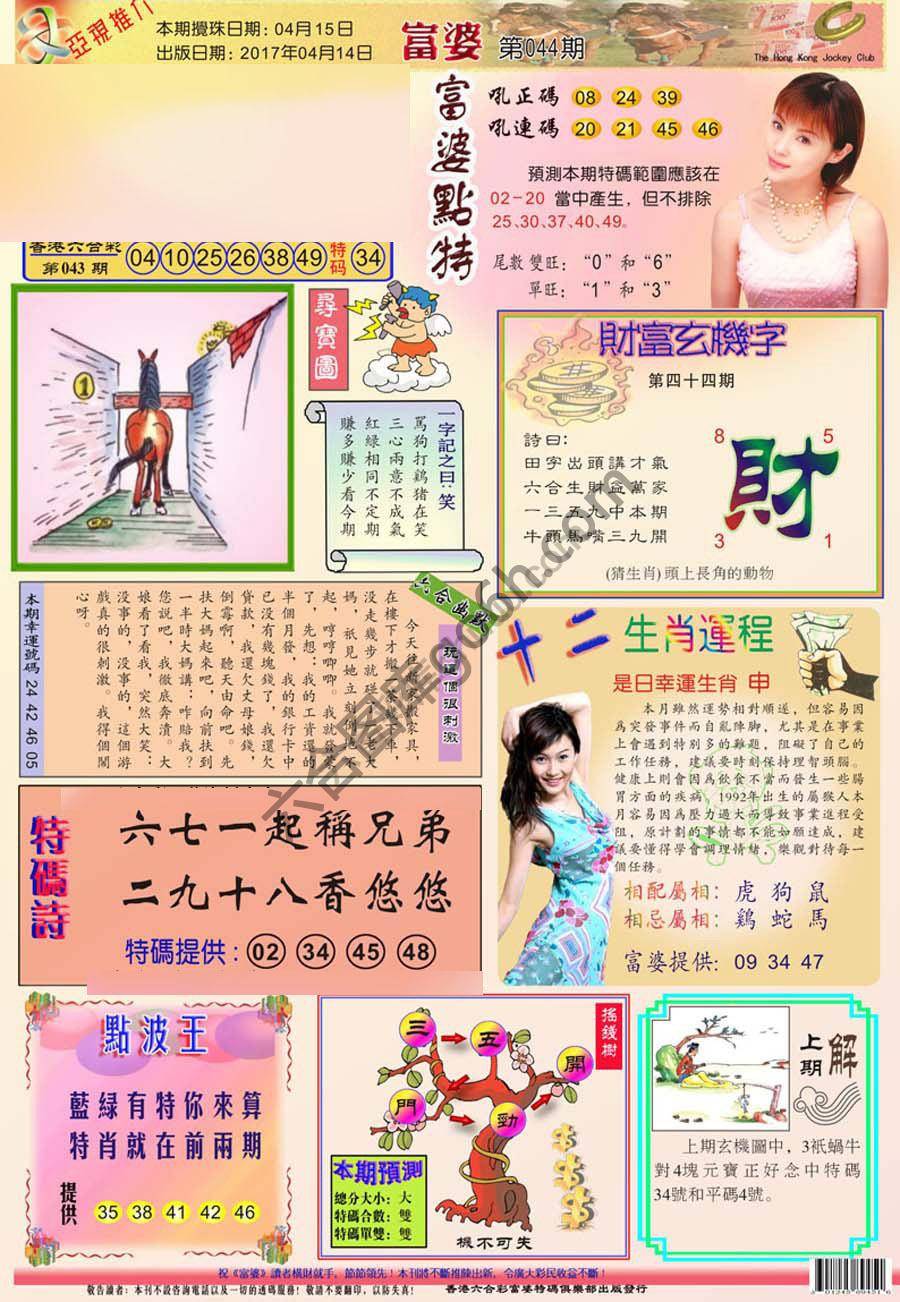 亞視推介
本期攪珠日期: 04月15日
出版日期: 2017年04月14日
富婆 第044期
The Hong Kong Jockey Club
富婆點特
吼正碼 08 24 39
吼連碼 20 21 45 46
預測本期特碼範圍應該在
02-20 當中產生，但不排除
25、30、37、40、49。
尾數雙旺：“0”和“6”
單旺：“1”和“3”
香港六合彩
第043期
04 10 25 26 38 49 特码 34
1
尋寶圖
一字記之曰：笑
罵狗打鷄猪在笑
三心兩意不成氣
紅綠相同不定期
賺多賺少看今期
財富玄機字
第四十四期
詩曰:
田字出頭講才氣
六合生財益萬家
一三五九中本期
牛頭馬嘴三九開
8 5
財
3 1
(猜生肖)頭上長角的動物
六合幽默
玩這個很刺激
今天往新家搬家具，
在樓下才撤
没走幾步就碰
媽，祇見她立刻倒地不
起，哼唧唧。我就發
了，先想：我的工資還
半個月發，我的銀行卡中
已没有幾塊錢了，我還欠
貸款，我還欠丈母娘錢，
倒霉啊，聽天由命吧。先
扶大媽起來吧，向前扶到
一半時大媽講：咋賠我？
您說吧。我徹底奔潰。大
娘看了看我，突然大笑：
没事的，没事的，這個游
戲真的很刺激。我得個關
心呀。
本期幸運號碼 24 42 46 05
十二生肖運程
是日幸運生肖 申
本月雖然運勢相對順遂，但容易因
為突發事件而自亂陣脚，尤其是在事業
上會遇到特別多的難題，阻礙了自己的
工作任務，建議要時刻保持理智頭腦。
健康上則會因為飲食不當而發生一些腸
胃方面的疾病。1992年出生的屬猴人本
月容易因為壓力過大而導致事業進程受
阻，原計劃的事情都不能如願達成，建
議要懂得學會調理情緒，樂觀對待每一
個任務。
相配屬相：虎 狗 鼠
相忌屬相：鷄 蛇 馬
富婆提供：09 34 47
特碼詩
六七一起稱兄弟
二九十八香悠悠
特碼提供：02 34 45 48
點波王
藍綠有特你來算
特肖就在前兩期
提供 35 38 41 42 46
搖錢樹
三 五 開
門 勁
本期預測
總分大小：大
特碼合數：雙
特碼單雙：雙
機不可失
上期解
上期玄機圖中，3衹蝸牛
對4塊元寶正好念中特碼
34號和平碼4號。
祝《富婆》讀者橫財就手，節節領先！本刊將不斷推陳出新，令廣大彩民收益不斷！
敬告讀者：本刊不設咨詢電話以及一切的透碼服務！敬請不要翻印，以防失真！
香港六合彩富婆特碼俱樂部出版發行
六合图库go6h.com